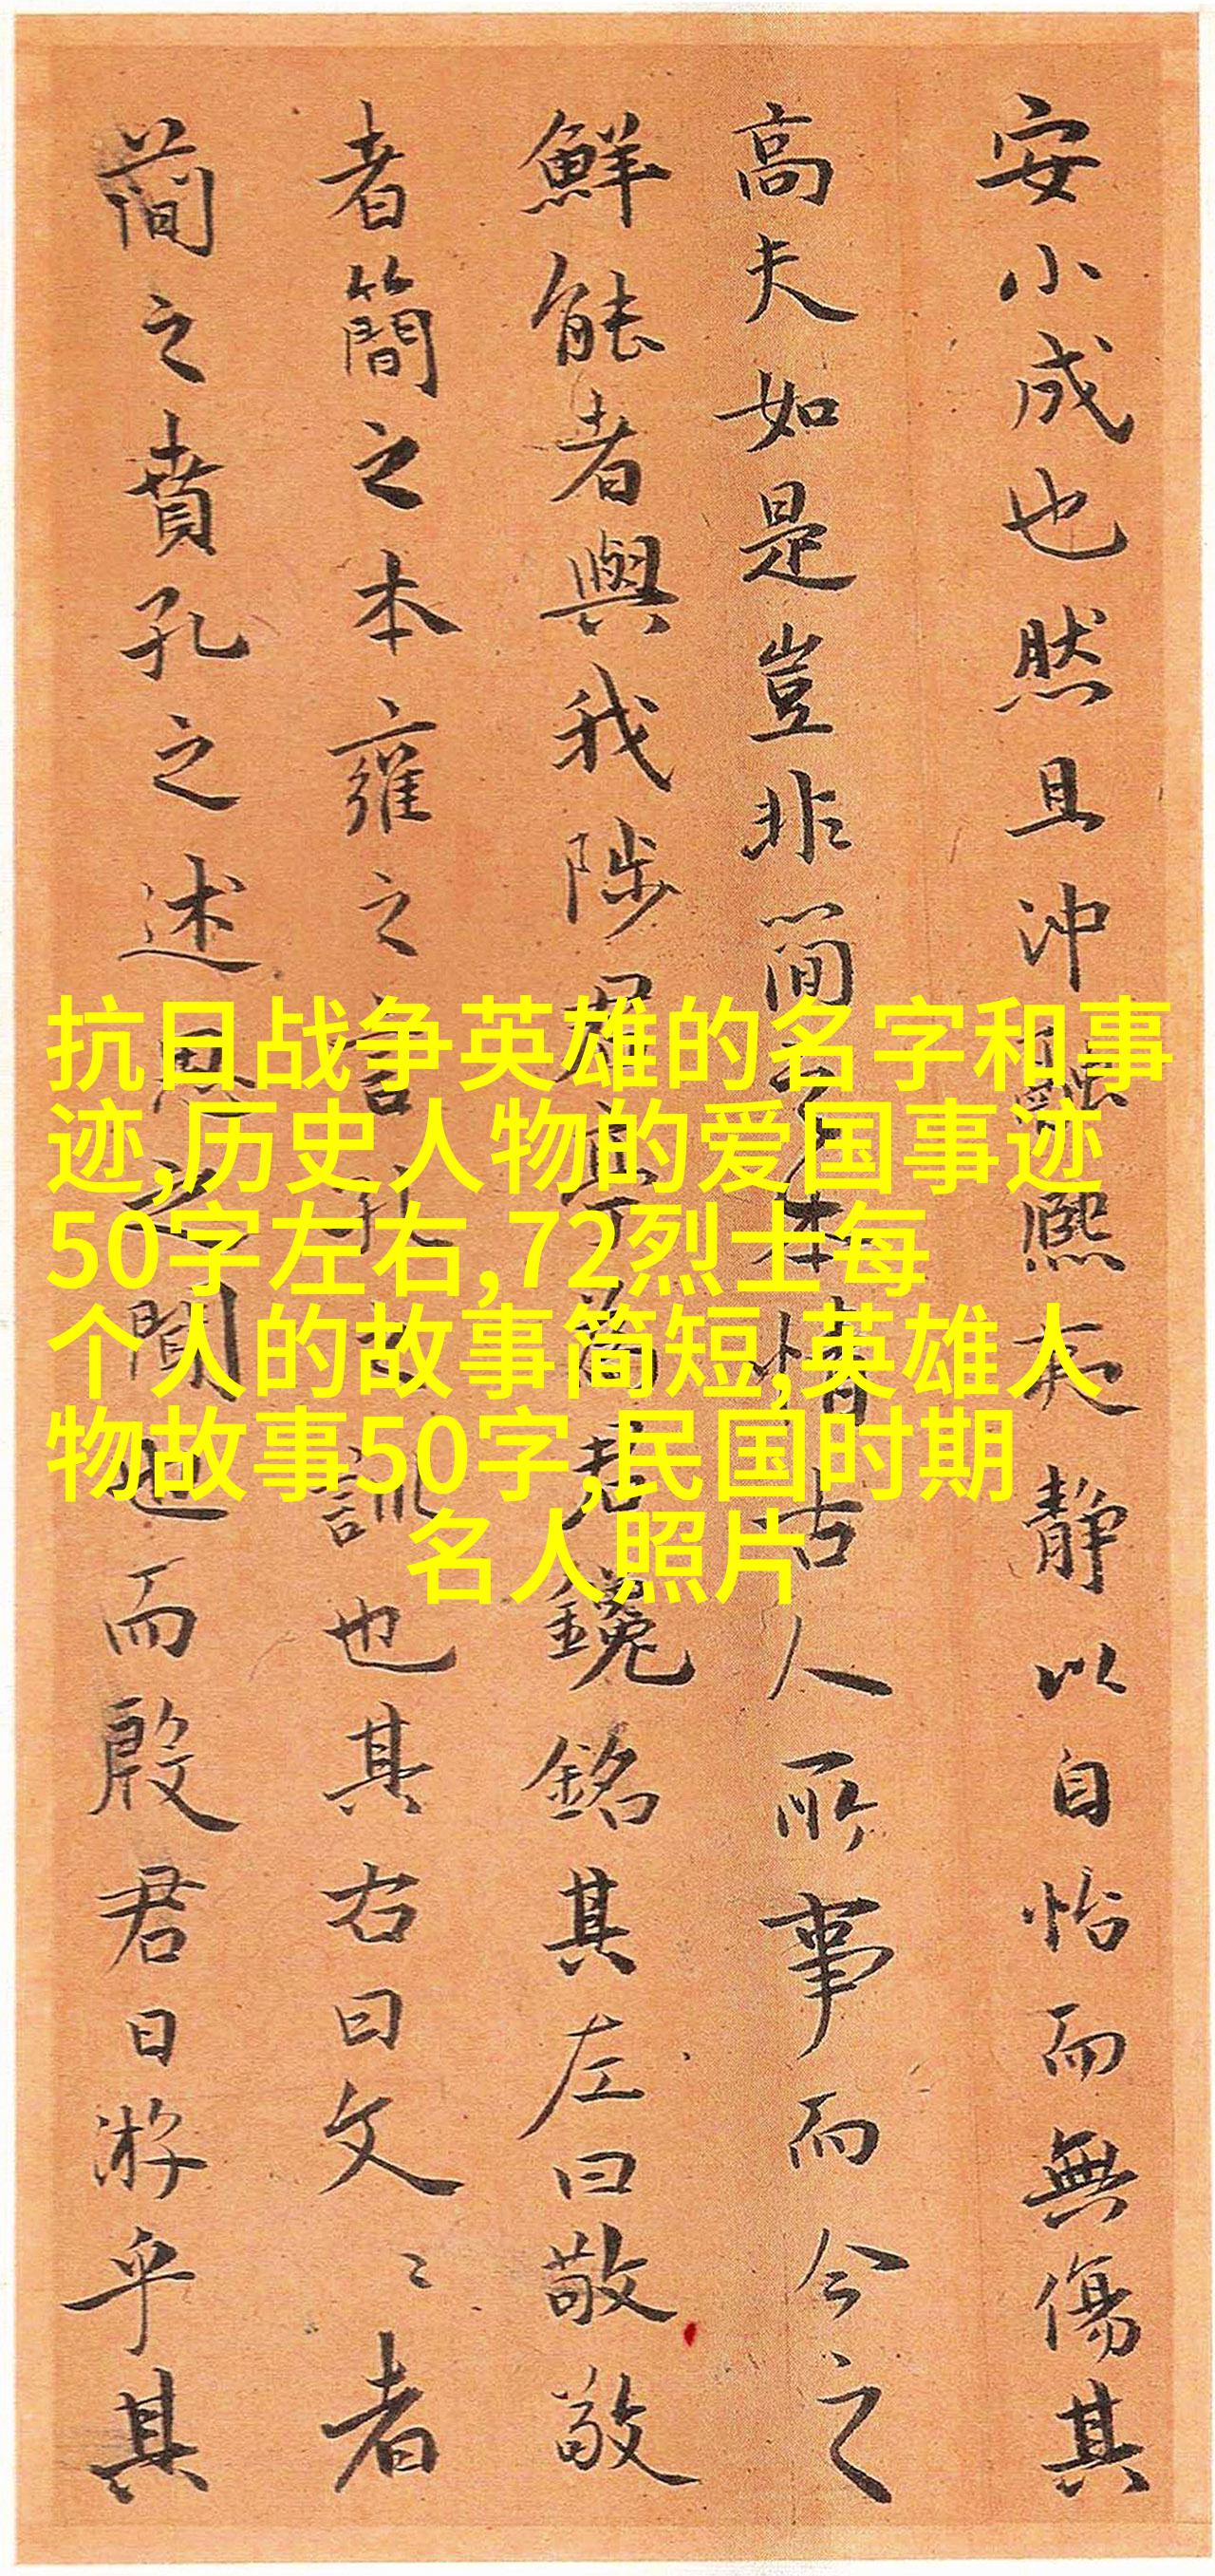 安小成也然且沖融熙夷靜以自怡而無傷其
高夫如是豈非簡之本情古人所事而今之
鮮能者與我陟君鑱銘其左曰敬敬
者簡之本雍之言孔之訓也其右曰文〻者
簡之賁孔之述思之聞也而殷君日游乎其
抗日战争英雄的名字和事
迹,历史人物的爱国事迹
50字左右,72烈士每
个人的故事简短,英雄人
物故事50字,民国时期
名人照片